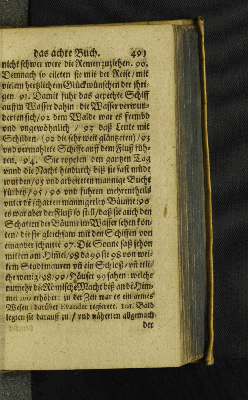 das achte Buch. 493
nicht schwer were die Remen zuziehen. 90.
Demnach so eileten sie mit der Reise/ mit
vielem hertzlichem Glückwünschen der ihri-
gen 91. Damit fuhr das gepechte Schiff
auffm Wasser dahin: die Wasser verwun-
derten sich/ 92 dem Walde war es frembd
und ungewöhnlich / 93 daß Leute mit
Schilden/ (92 die sehr weit gläntzeten) /93
und vermahlete Schiffe auff dem Fluß füh-
ren. 94. Sie roppeten den gantzen Tag
vnnd die Nacht hindurch biß sie fast müde
wurden/ 95 vnd arbeiteten mannige Bucht
fürbey/ 95 96 und fuhren mehrentheils
unter dē schatten mannigerley Bäume 96
es war aber der Fluß so still/ daß sie auch den
Schatten der Bäume im Wasser sehen kön-
ten/ die sie gleichsam mit den Schiffen von
einander schnitte 97. Die Sonne saß schon
mitten am Him̄el/ 98 da 99 sie 98 von wei-
tem Stadtmauren vn̄ ein Schloß/ vn̄ etli-
che wen: 98/ 99/ Häuser 99 sahen: welche
nunmehr die Römische Macht biß and ie Him-
mel 100 erhöhet: zu der Zeit war es ein armes
Wesen/ darüber Evander regierete. 101. Bald
legten sie darauf zu / und näherten allgemach
der